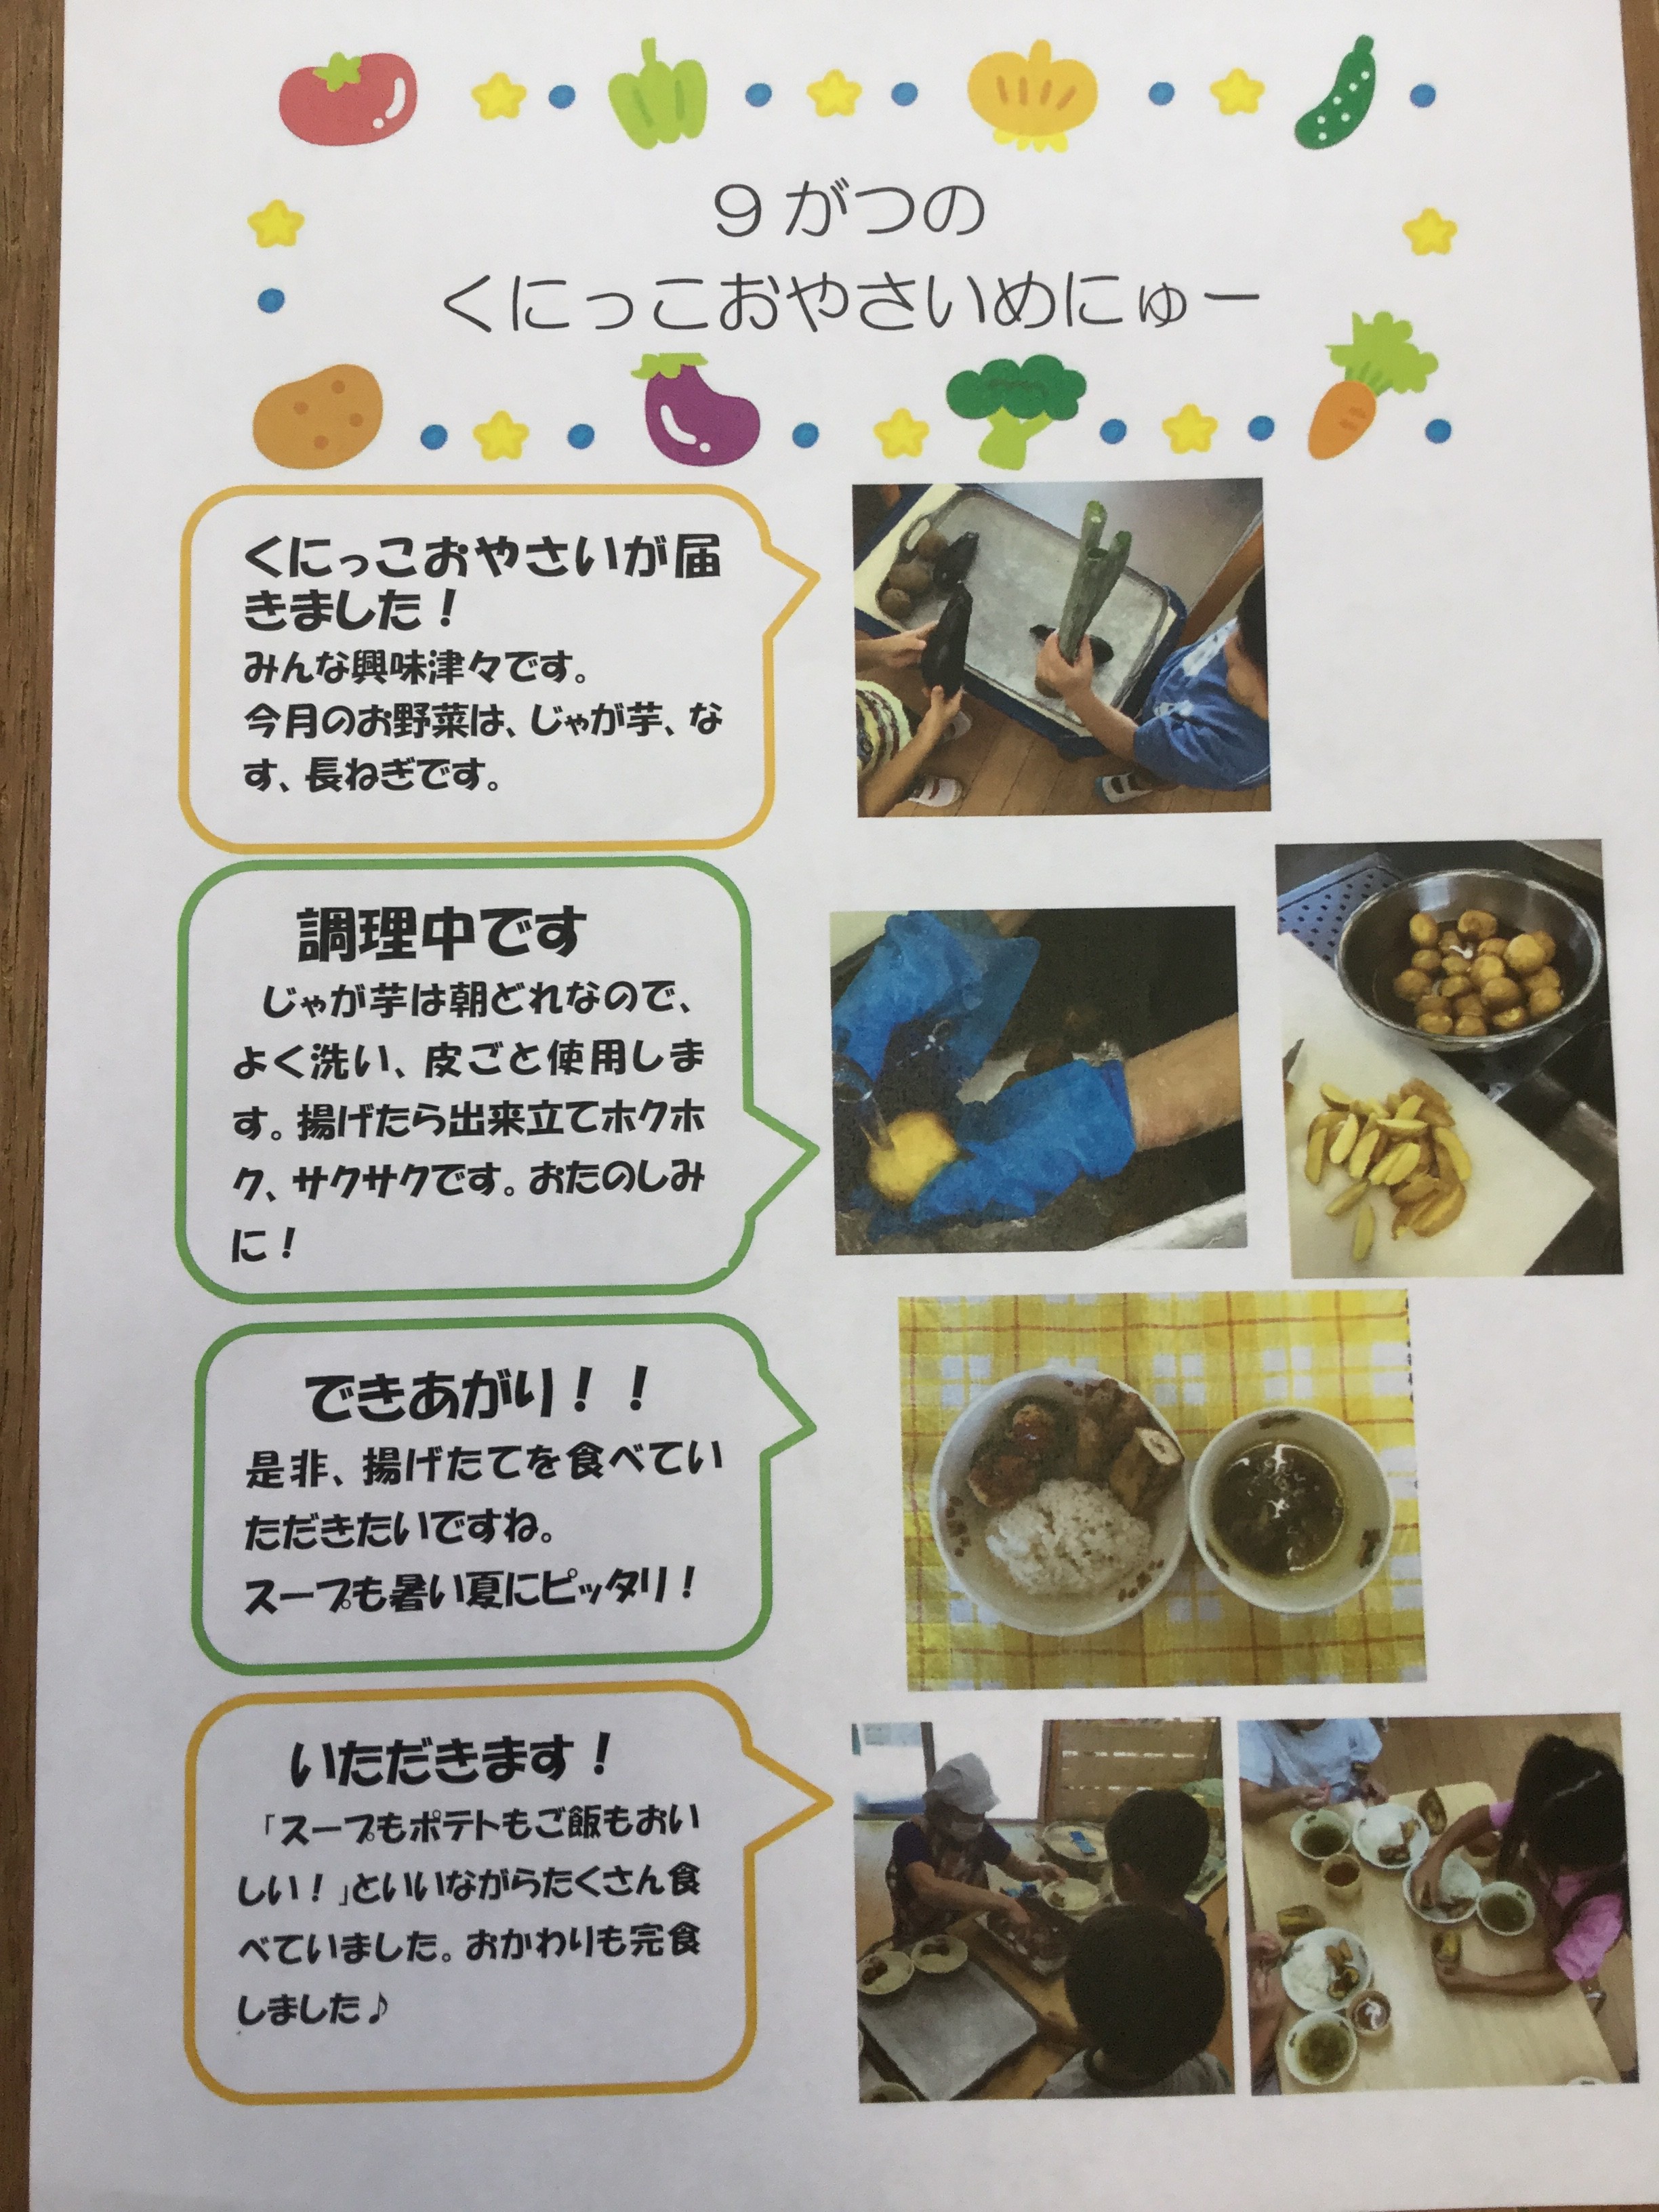 ９がつの
くにっこおやさいめにゅー
くにっこおやさいが届
きました！
みんな興味津々です。
今月のお野菜は、じゃが芋、な
す、長ねぎです。
調理中です
じゃが芋は朝どれなので、
よく洗い、皮ごと使用しま
す。揚げたら出来立てホクホ
ク、サクサクです。おたのしみ
に！
できあがり！！
是非、揚げたてを食べてい
ただきたいですね。
スープも暑い夏にピッタリ！
いただきます！
「スープもポテトもご飯もおい
しい！」といいながらたくさん食
べていました。おかわりも完食
しました♪